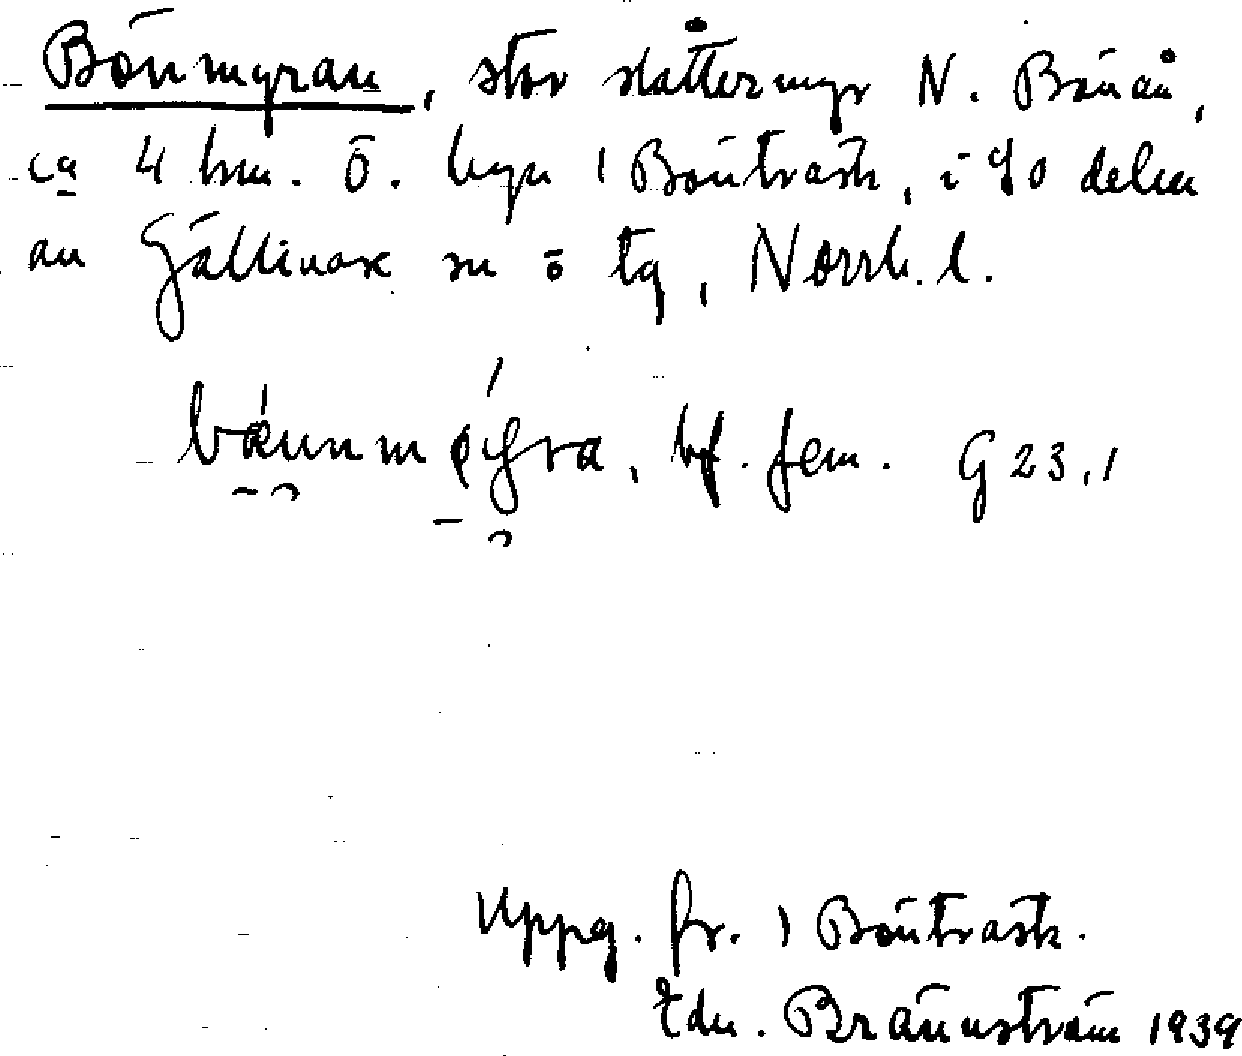 Bönmyran, stor slåttermyr N. Bönån,
ca 4 km. Ö. byn i Böntrask, i SÖ delen
av Gällivare sn o tg, Norrb. l.
bf. fem. G 23,1
Uppg. fr. i Böntrask.
Edv. Brännström 1939